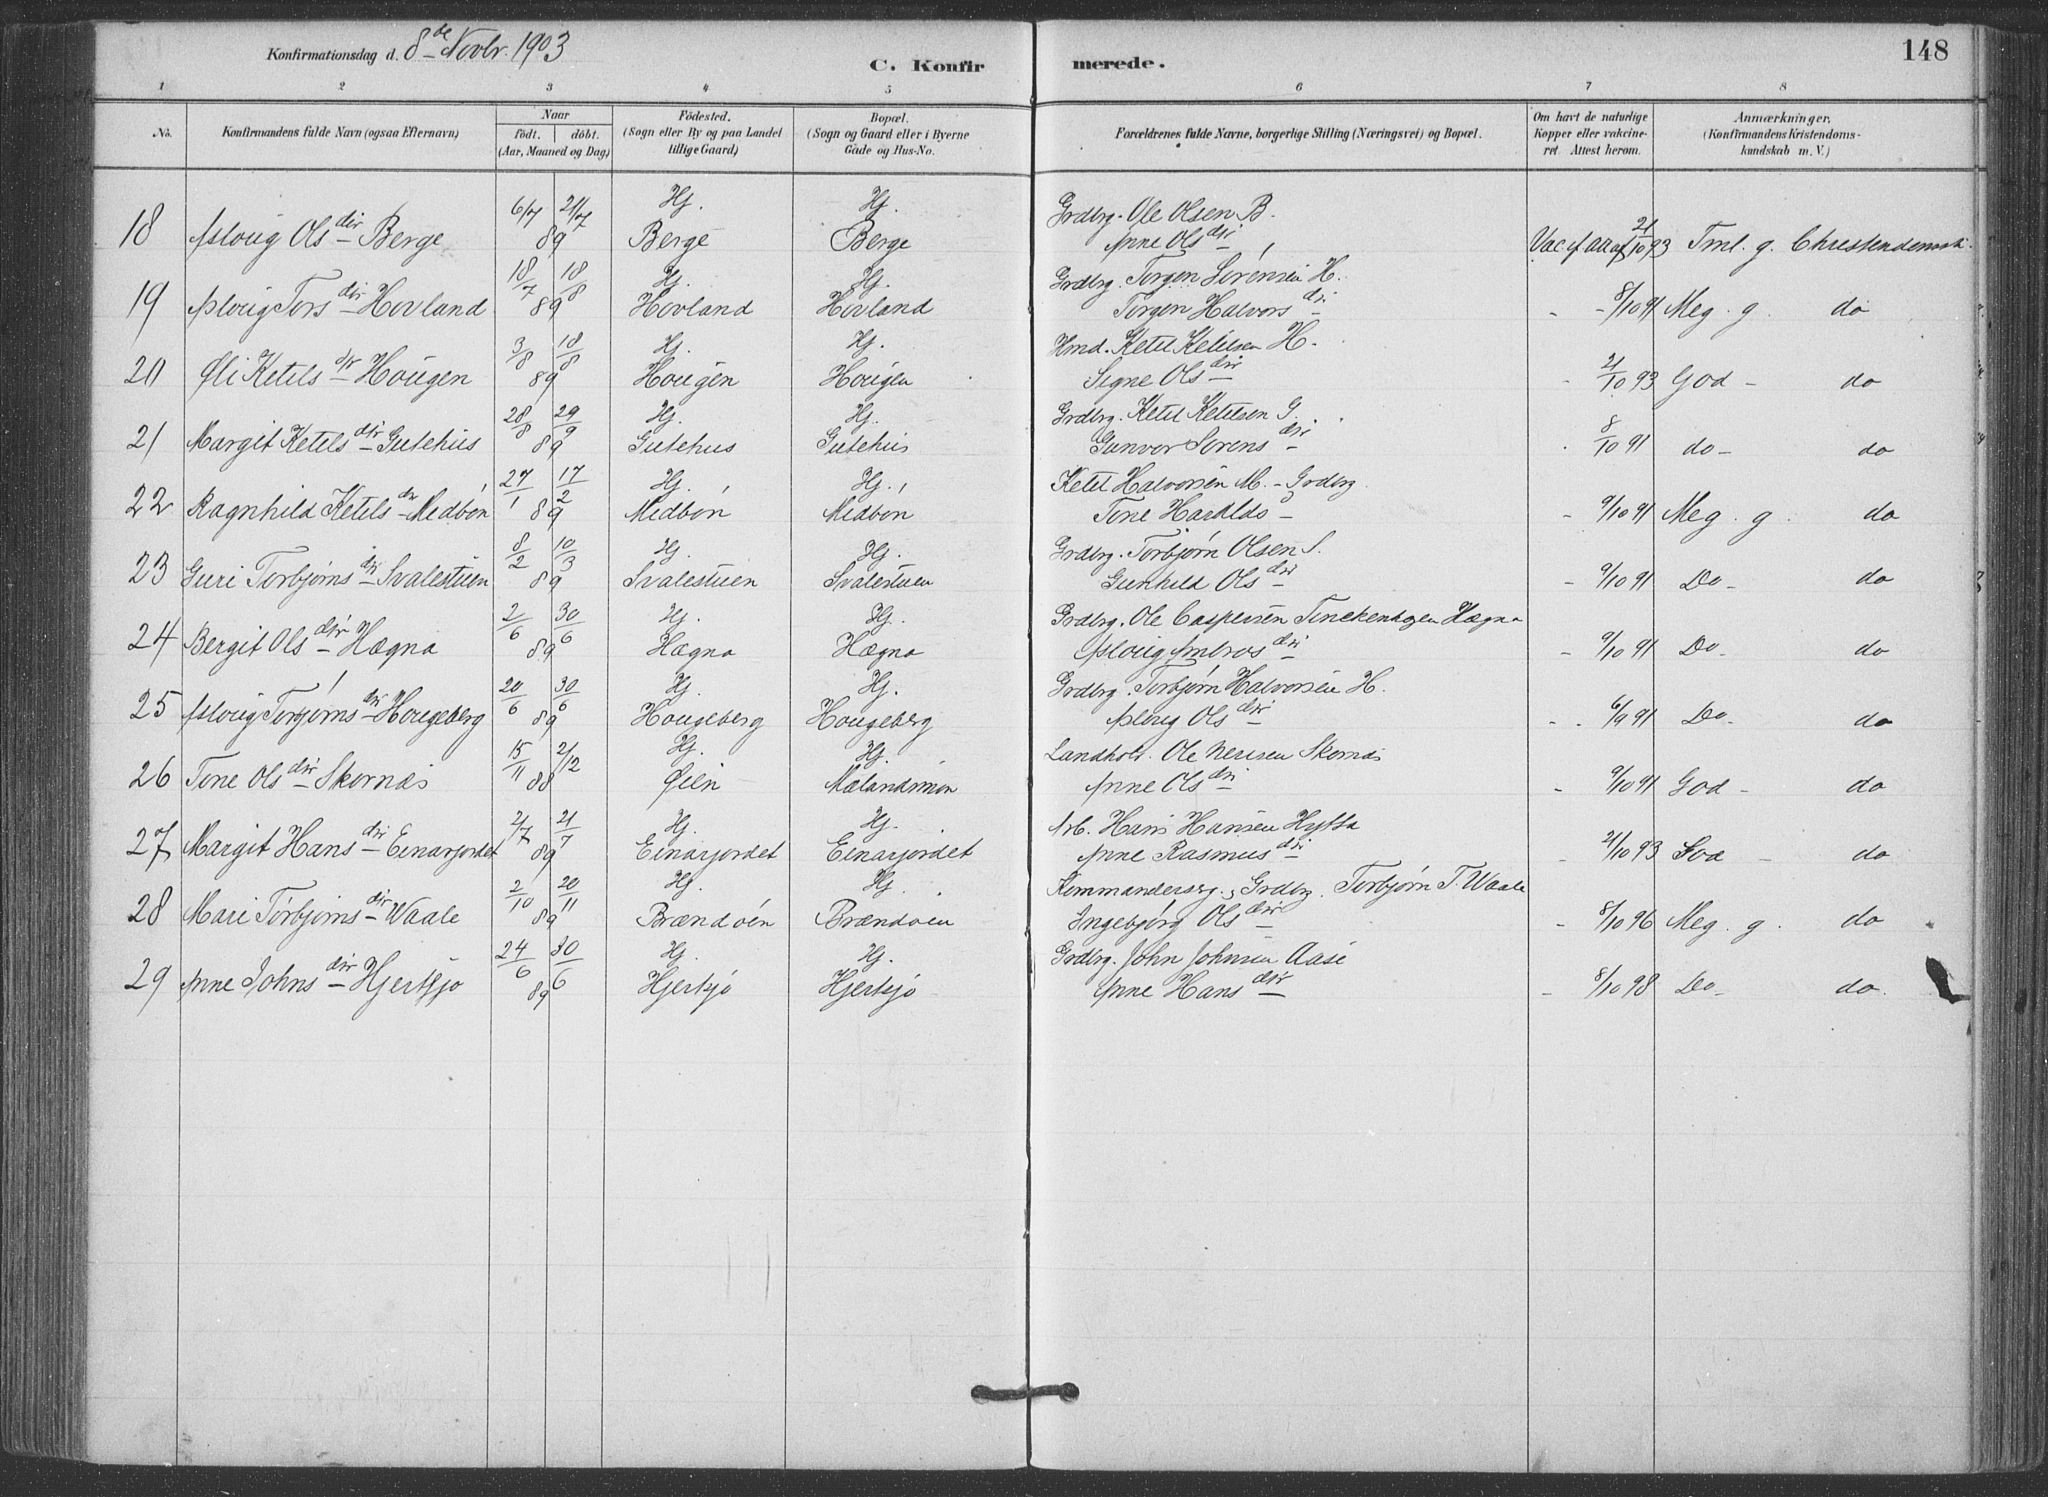 Konfirmationsdag d. 8de Novbr. 1903
C. Konfirmerede.
148
1 2 3 4 5 6 7 8
No. Konfirmandens fulde Navn (ogsaa Efternavn) Naar födt. döbt. (Aar, Maaned og Dag) Födested. (Sogn eller By og paa Landet tillige Gaard) Bopæl. (Sogn og Gaard eller i Byerne Gade og Hus-No. Forældrenes fulde Navne, borgerlige Stilling (Næringsvei) og Bopæl. Om havt de naturlige Kopper eller vakcineret. Attest herom. Anmærkninger, (Konfirmandens Kristendomskundskab m. V.)
6/7 21/7 Hj. Hj. Grdbrg. Ole Olsen B.
18 Asloug Olsdtr Berge 89 Berge Berge Anne Olsdtr Vac 21/10 93 Tml. g. Christendomsk.
18/7 18/8 Hj. Hj. Grdbrg. Torgen Sørensen H.
19 Asloug Torsdtr Hovland 89 Hovland Hovland Torgon Halvorsdtr - 8/10 91 Meg. g. do
3/8 18/8 Hj. Hj. Hmd. Ketel Ketelsen H.
20 Øli Ketelsdtr Hougen 89 Hougen Hougen Signe Olsdtr - 21/10 93 God - do
28/8 29/9 Hj. Hj. Grdbrg. Ketel Ketelsen G.
21 Margit Ketelsdtr Gutehus 89 Gutehus Gutehus Gunvor Sørensdtr 8/10 91 do - do
27/1 17/2 Hj. Hj. Ketel Halvorsen M. - Grdbrg.
22 Ragnhild Ketelsdtr Medbøn 89 Medbøn Medbøn Tone Haralds - - 9/10 91 Meg. g. do
8/2 10/3 Hj. Hj. Grdbrg. Torbjørn Olsen S.
23 Guri Torbjørnsdtr Svalestuen 89 Svalestuen Svalestuen Gunhild Olsdtr - 9/10 91 Do - do
2/6 30/6 Hj. Hj. Grdbrg. Ole Caspersen Finckenhagen Hægna
24 Bergit Olsdtr Hægna 89 Hægna Hægna Asloug Ambrosdtr - 9/10 91 Do - do
20/6 30/6 Hj. Hj. Grdbrg. Torbjørn Halvorsen H.
25 Asloug Torbjørnsdtr Hougeberg 89 Hougeberg Hougeberg Asloug Olsdtr - 6/9 91 Do - do
15/11 2/12 Hj. Hj. Landhdl. Ole Nerisen Skornæs
26 Tone Olsdtr Skornæs 88 Øien Mælandsmon Anne Olsdtr - 9/10 91 God - do
2/7 21/7 Hj. Hj. Arb. Hans Hansen Hytta
27 Margit Hansdtr Einarjordet 89 Einarjordet Einarjordet Anne Rasmusdtr - 21/10 93 God - do
2/10 20/11 Hj. Hj. Kommandersrg. & Grdbrg. Torbjørn T. Waale
28 Mari Torbjørnsdtr Waale 89 Brændøen Brændøen Ingebjørg Olsdtr - 8/10 96 Meg. g. do
24/6 30/6 Hj. Hj. Grdbrg. John Johnsen Aase
29 Anne Johnsdtr Hjertsjø 89 Hjertsjø Hjertsjø Anne Hansdtr - 8/10 98 Do - do.